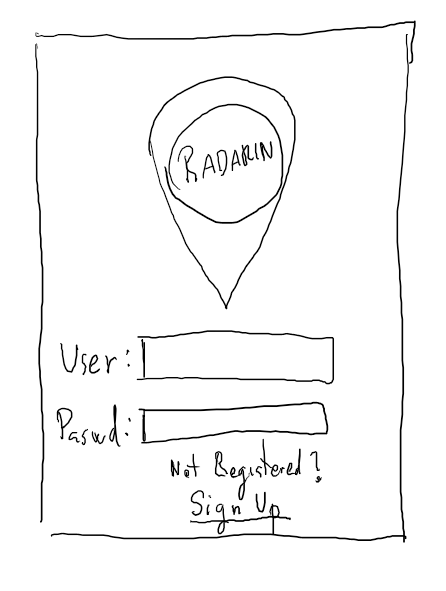 RADARIN
User:
Paswd:
Not Registered?
Sign Up